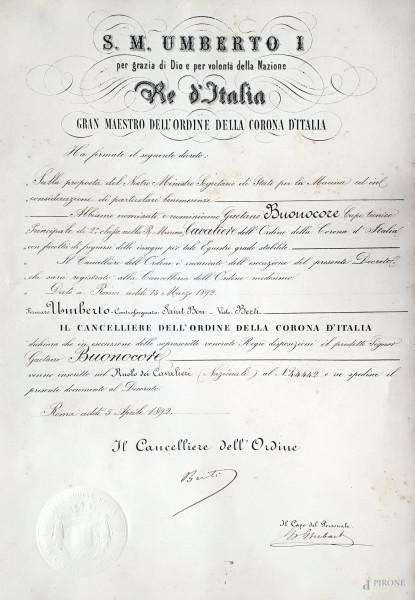 S. M. UMBERTO I
per grazia di Dio e per volontà della Nazione
Re d'Italia
GRAN MAESTRO DELL'ORDINE DELLA CORONA D'ITALIA
Ha firmato il seguente decreto:
Sulla proposta del Nostro Ministro Segretario di Stato per la Marina ed in
considerazione di particolari benemerenze
Abbiamo nominato e nominiamo Gaetano Buonocore Capo tecnico
Principale di 2ª classe nella R. Marina, Cavaliere dell'Ordine della Corona d'Italia
con facoltà di fregiarsi delle insegne per tale Equestre grado stabilite.
Il Cancelliere dell'Ordine è incaricato dell'esecuzione del presente Decreto
che sarà registrato alla Cancelleria dell'Ordine medesimo.
Dato a Roma addì 15 Marzo 1892.
Firmato Umberto - Controfirmato: Saint Bon - Visto: Berti.
IL CANCELLIERE DELL'ORDINE DELLA CORONA D'ITALIA
dichiara che in esecuzione delle soprascritte venerate Regie disposizioni il predetto Signor
Gaetano Buonocore
venne inscritto nel Ruolo dei Cavalieri (Nazionali) al N. 34442 e ne spedisce il
presente documento al Decorato.
Roma addì 5 Aprile 1892.
Il Cancelliere dell'Ordine
Berti
Il Capo del Personale
PIRONE